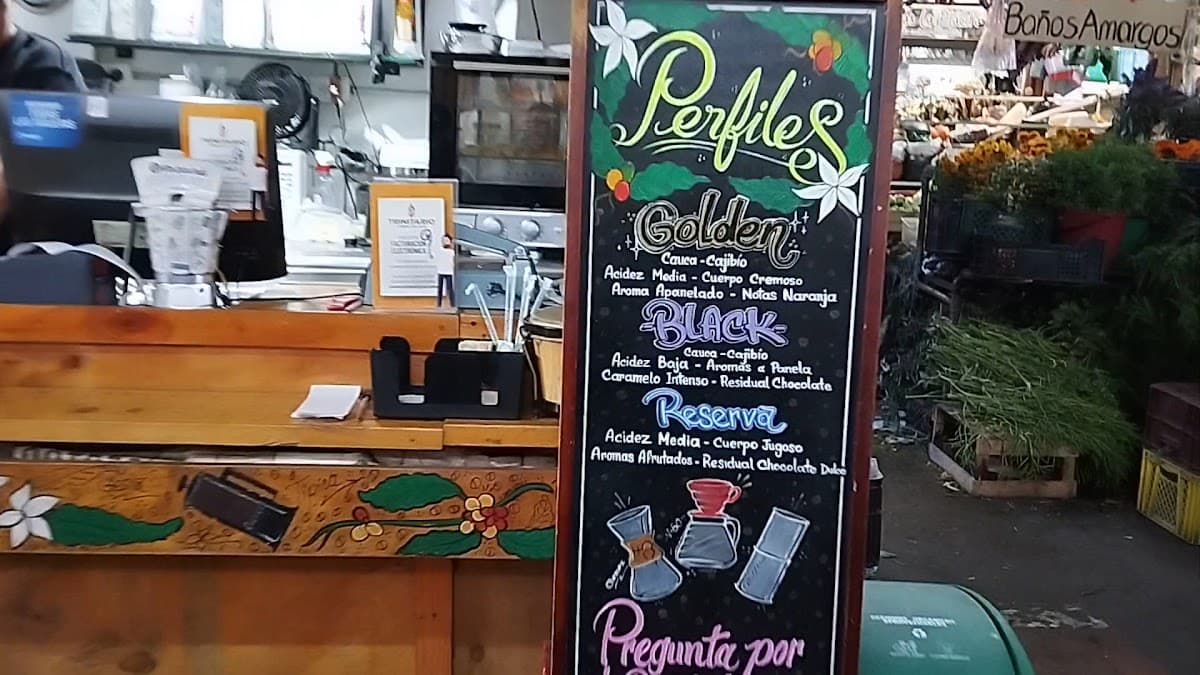 Baños Amargos
Perfiles
Golden
Cauca - Cajibío
Acidez Media - Cuerpo Cremoso
Aroma Apanelado - Notas Naranja
-BLACK-
Cauca - Cajibío
Acidez Baja - Aromas a Panela
Caramelo Intenso - Residual Chocolate
Reserva
Acidez Media - Cuerpo Jugoso
Aromas Afrutados - Residual Chocolate Dulce
Pregunta por
FACTURACIÓN
ELECTRÓNICA